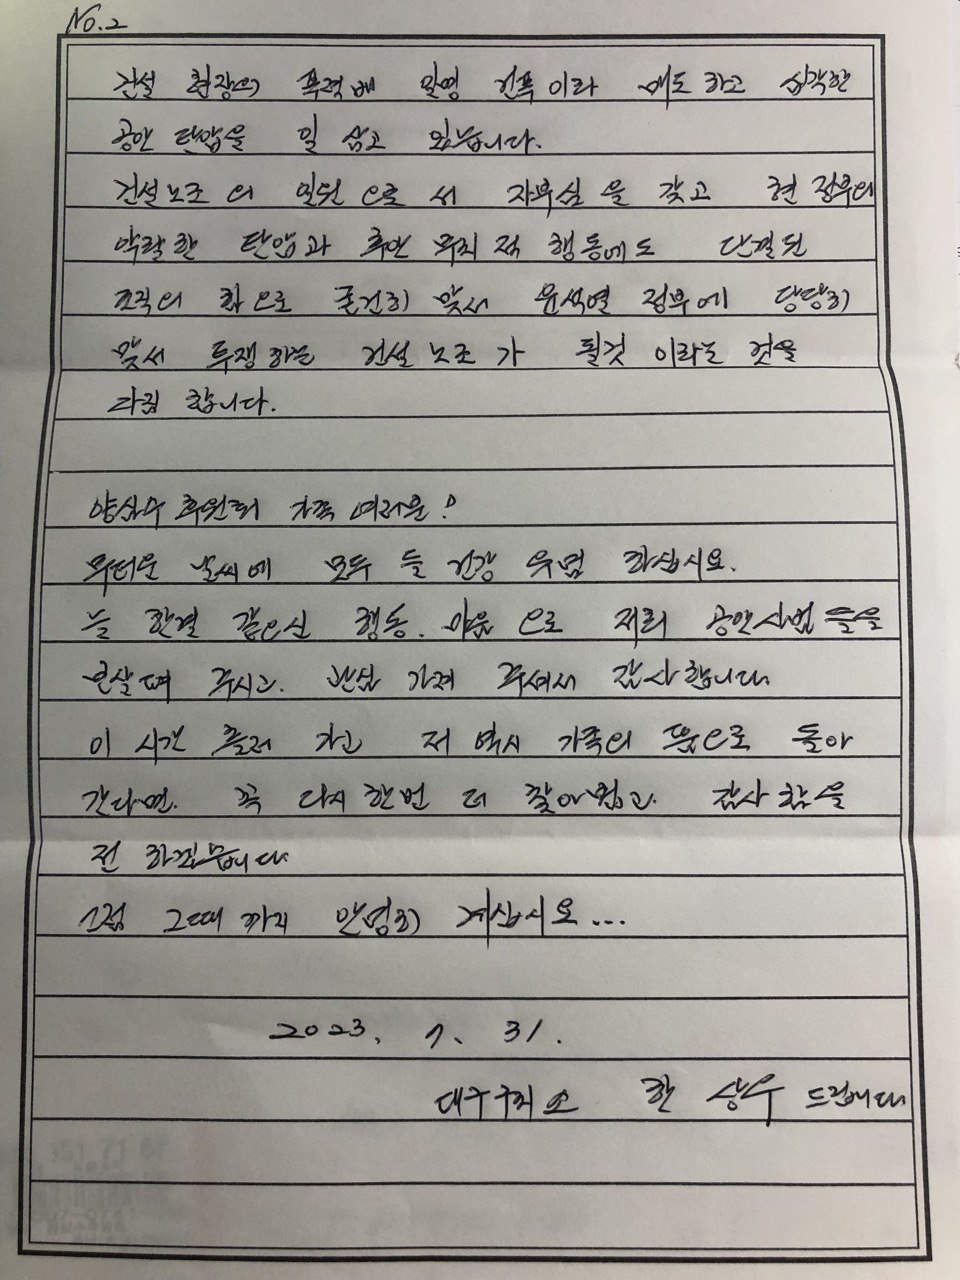 No.2
건설 현장의 폭력배 일명 건폭이라 매도 하고 심각한
공안 탄압을 일 삼고 있습니다.
건설노조의 일원으로서 자부심을 갖고 현 정부의
악랄한 탄압과 후안무치적 행동에도 단결된
조직의 힘으로 굳건히 맞서 윤석열 정부에 당당히
맞서 투쟁하는 건설노조가 될것 이라는 것을
다짐 합니다.
양심수 후원회 가족 여러분!
무더운 날씨에 모두들 건강 유념 하십시요.
늘 한결 같으신 행동. 마음으로 저희 공안사범들을
보살펴 주시고. 관심 가져 주셔서 감사합니다.
이 시간 흘러 가고 저 역시 가족의 품으로 돌아
간다면. 꼭 다시한번 더 찾아뵙고. 감사함을
전 하겠습니다.
그럼 그때까지 안녕히 계십시요...
2023. 7. 31.
대구구치소 한 상우 드립니다.